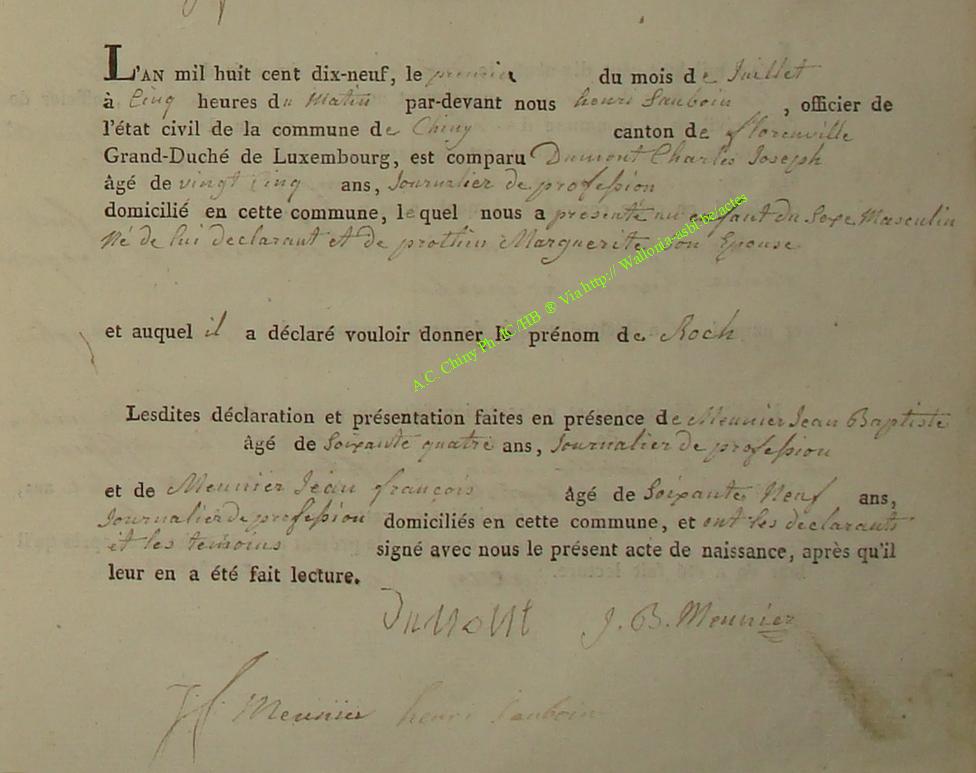 L'AN mil huit cent dix-neuf, le premier du mois de Juillet
à Cinq heures du Matin par-devant nous henri Sauboin , officier de
l'état civil de la commune de Chiny canton de florenville
Grand-Duché de Luxembourg, est comparu Dumont Charles Joseph
âgé de vingt Cinq ans, Journalier de profession
domicilié en cette commune, lequel nous a présenté un enfant du Sexe Masculin
Né de lui declarant et de prothin Marguerite Son Epouse
et auquel il a déclaré vouloir donner le prénom de Roch
Lesdites déclaration et présentation faites en présence de Meunier Jean Baptiste
âgé de Soixante quatre ans, Journalier de profession
et de Meunier Jean françois âgé de Soixante Neuf ans,
Journalier de profession domiciliés en cette commune, et ont les declarants
et les temoins signé avec nous le présent acte de naissance, après qu'il
leur en a été fait lecture.
Dumont J. B. Meunier
J f Meunier henri Sauboin
A.C. Chiny Ph JC /HB ® Via http:// Wallonia-asbl.be/actes